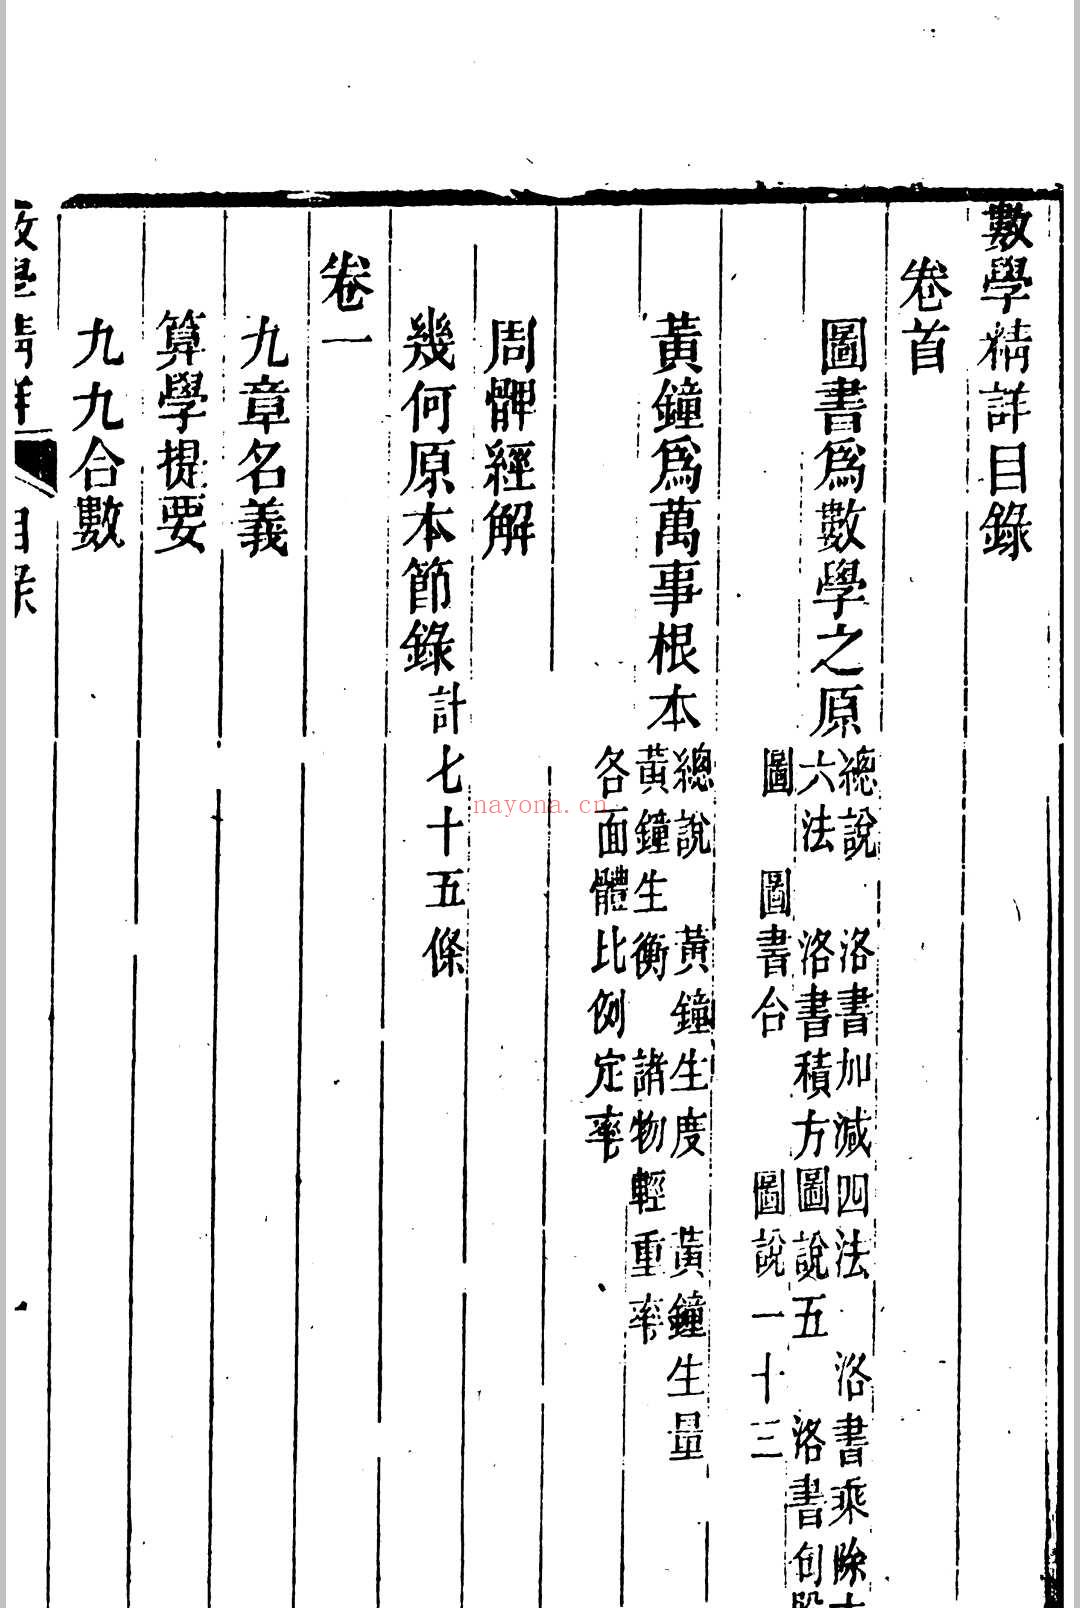 數學精詳目錄
卷首
圖書爲數學之原
總說 洛書加減四法 洛書乘除
六法 洛書積方圖說五 洛書勾股
圖 圖書合 圖說一十三
黃鐘爲萬事根本
總說 黃鐘生度 黃鐘生量
黃鐘生衡 諸物輕重率
各面體比例定率
周髀經解
幾何原本節錄計七十五條
卷一
九章名義
算學提要
九九合數
數學精詳 目錄
nayona.cn